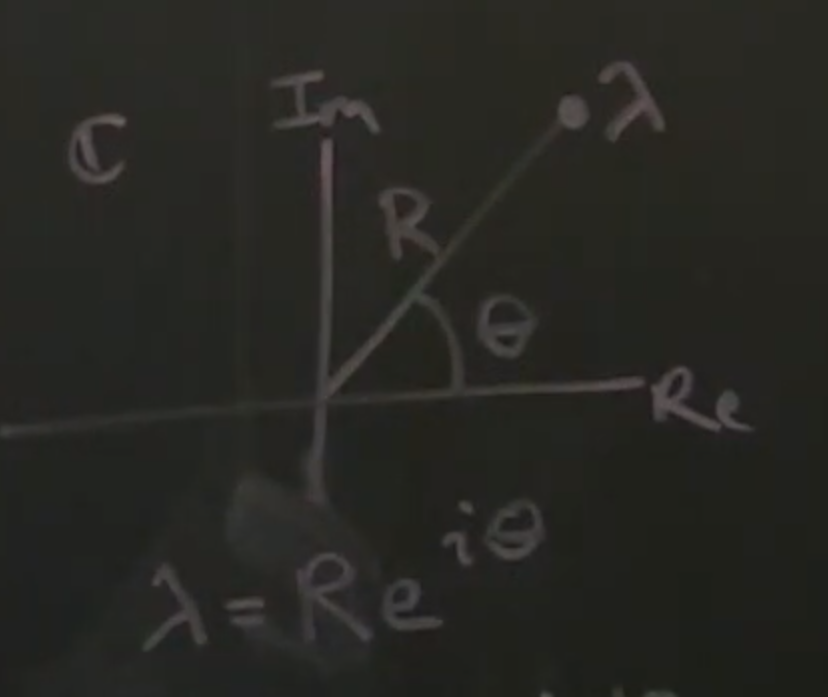 ℂ
Im
λ
R
θ
Re
λ = Re^{iθ}